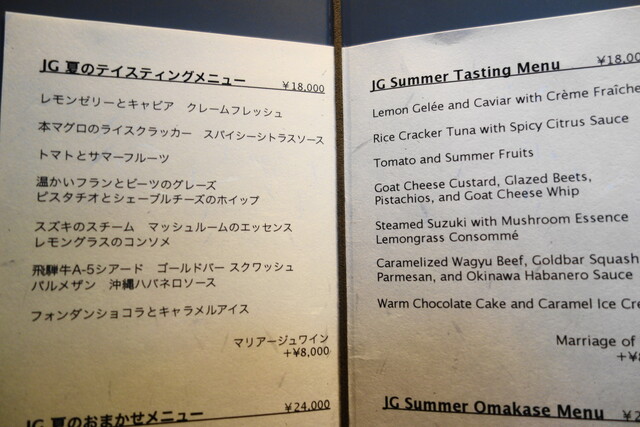 JG 夏のテイスティングメニュー
¥18,000
レモンゼリーとキャビア　クレームフレッシュ
本マグロのライスクラッカー　スパイシーシトラスソース
トマトとサマーフルーツ
温かいフランとビーツのグレーズ
ピスタチオとシェーブルチーズのホイップ
スズキのスチーム　マッシュルームのエッセンス
レモングラスのコンソメ
飛騨牛A-5シアード　ゴールドバー スクワッシュ
パルメザン　沖縄ハバネロソース
フォンダンショコラとキャラメルアイス
マリアージュワイン
+¥8,000
JG 夏のおまかせメニュー
¥24,000
JG Summer Tasting Menu
¥18,00
Lemon Gelée and Caviar with Crème Fraîche
Rice Cracker Tuna with Spicy Citrus Sauce
Tomato and Summer Fruits
Goat Cheese Custard, Glazed Beets,
Pistachios, and Goat Cheese Whip
Steamed Suzuki with Mushroom Essence
Lemongrass Consommé
Caramelized Wagyu Beef, Goldbar Squash
Parmesan, and Okinawa Habanero Sauce
Warm Chocolate Cake and Caramel Ice Cre
Marriage of
+¥8
JG Summer Omakase Menu
¥2